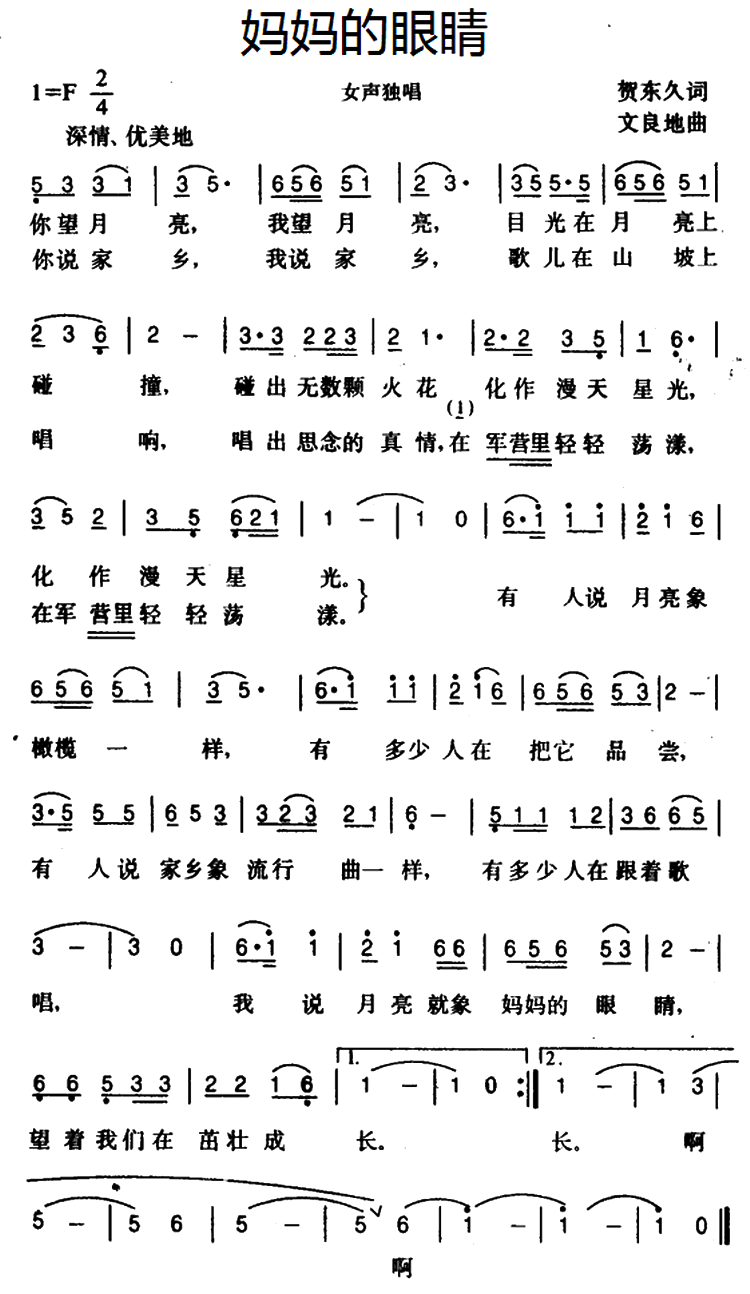 妈妈的眼睛
1=F 2/4 女声独唱 贺东久词
深情、优美地 文良地曲
5 3 3 1 | 3 5· | 6 5 6 5 1 | 2 3· | 3 5 5·5 | 6 5 6 5 1 |
你望月 亮, 我望月 亮, 目光在月 亮上
你说家 乡, 我说家 乡, 歌儿在山 坡上
2 3 6 | 2 – | 3·3 2 2 3 | 2 1· | 2·2 3 5 | 1 6· |
碰 撞, 碰出无数颗火花 化作漫天星光,
(1)
唱 响, 唱出思念的真情,在军营里轻轻荡漾,
3 5 2 | 3 5 6 2 1 | 1 – | 1 0 | 6·i i i | 2 i 6 |
化作漫天星 光。 有 人说月亮象
在军营里轻轻荡 漾。
6 5 6 5 1 | 3 5· | 6·i i i | 2 i 6 | 6 5 6 5 3 | 2 – |
橄榄一 样, 有 多少人在把它品尝,
3·5 5 5 | 6 5 3 | 3 2 3 2 1 | 6 – | 5 1 1 1 2 | 3 6 6 5 |
有人说家乡象流行曲一样, 有多少人在跟着歌
3 – | 3 0 | 6·i i | 2 i 6 6 | 6 5 6 5 3 | 2 – |
唱, 我说月亮就象妈妈的眼睛,
6 6 5 3 3 | 2 2 1 6 | 1. 1 – | 1 0 :| 2. 1 – | 1 3 |
望着我们在茁壮成长。 长。 啊
5 – | 5 6 | 5 – | 5 6 | i – | i – | i 0 ‖
啊